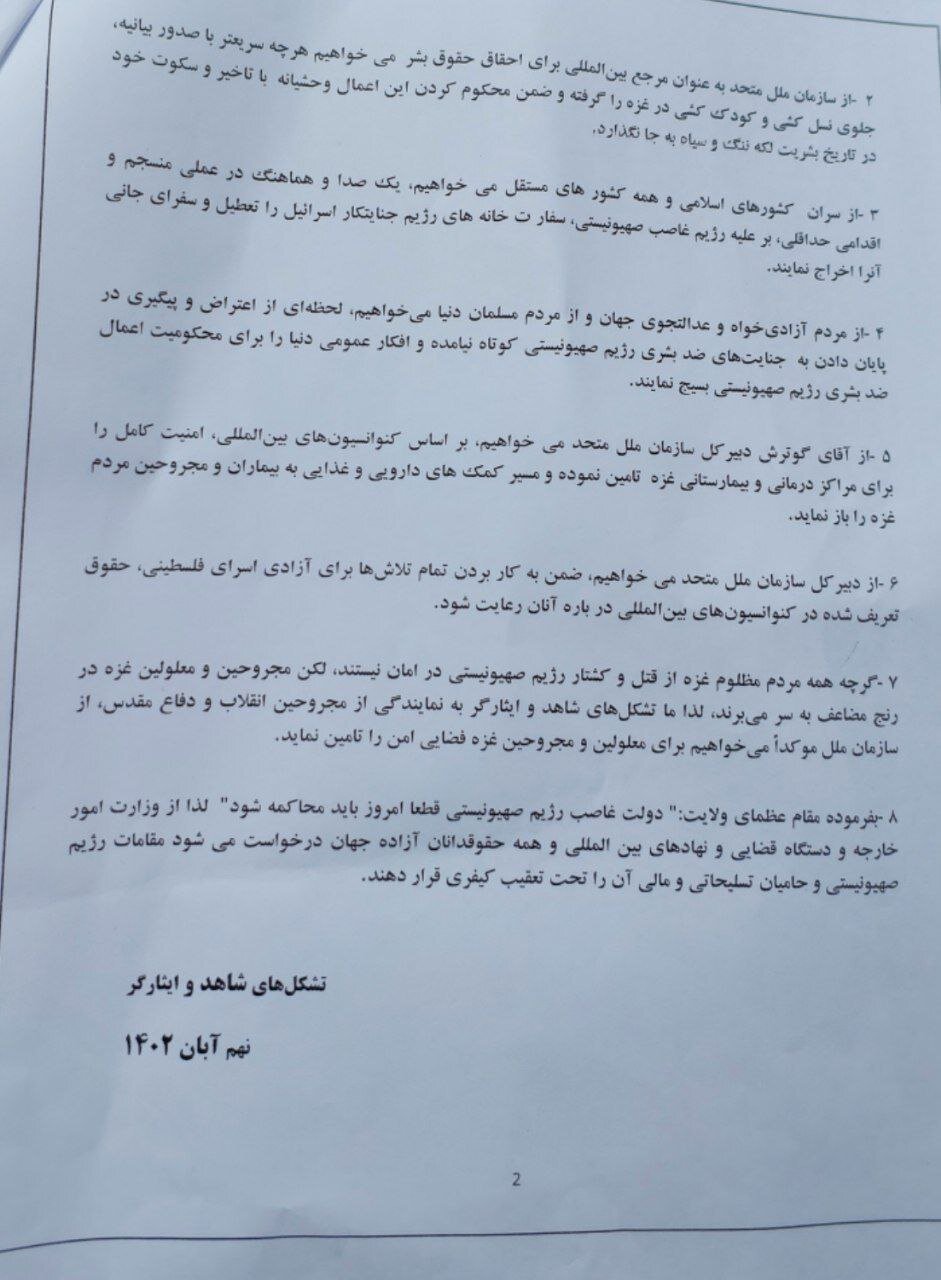 ۲ -از سازمان ملل متحد به عنوان مرجع بین‌المللی برای احقاق حقوق بشر می خواهیم هرچه سریعتر با صدور بیانیه،
جلوی نسل کشی و کودک کشی در غزه را گرفته و ضمن محکوم کردن این اعمال وحشیانه با تاخیر و سکوت خود
در تاریخ بشریت لکه ننگ و سیاه به جا نگذارد.
۳ -از سران کشورهای اسلامی و همه کشور های مستقل می خواهیم، یک صدا و هماهنگ در عملی منسجم و
اقدامی حداقلی، بر علیه رژیم غاصب صهیونیستی، سفار ت خانه های رژیم جنایتکار اسرائیل را تعطیل و سفرای جانی
آنرا اخراج نمایند.
۴ -از مردم آزادی‌خواه و عدالتجوی جهان و از مردم مسلمان دنیا می‌خواهیم، لحظه‌ای از اعتراض و پیگیری در
پایان دادن به جنایت‌های ضد بشری رژیم صهیونیستی کوتاه نیامده و افکار عمومی دنیا را برای محکومیت اعمال
ضد بشری رژیم صهیونیستی بسیج نمایند.
۵ -از آقای گوترش دبیر کل سازمان ملل متحد می خواهیم، بر اساس کنوانسیون‌های بین‌المللی، امنیت کامل را
برای مراکز درمانی و بیمارستانی غزه تامین نموده و مسیر کمک های دارویی و غذایی به بیماران و مجروحین مردم
غزه را باز نماید.
۶ -از دبیر کل سازمان ملل متحد می خواهیم، ضمن به کار بردن تمام تلاش‌ها برای آزادی اسرای فلسطینی، حقوق
تعریف شده در کنوانسیون‌های بین‌المللی در باره آنان رعایت شود.
۷ -گرچه همه مردم مظلوم غزه از قتل و کشتار رژیم صهیونیستی در امان نیستند، لکن مجروحین و معلولین غزه در
رنج مضاعف به سر می‌برند، لذا ما تشکل‌های شاهد و ایثارگر به نمایندگی از مجروحین انقلاب و دفاع مقدس، از
سازمان ملل موکداً می‌خواهیم برای معلولین و مجروحین غزه فضایی امن را تامین نماید.
۸ -بفرموده مقام عظمای ولایت:" دولت غاصب رژیم صهیونیستی قطعا امروز باید محاکمه شود" لذا از وزارت امور
خارجه و دستگاه قضایی و نهادهای بین المللی و همه حقوقدانان آزاده جهان درخواست می شود مقامات رژیم
صهیونیستی و حامیان تسلیحاتی و مالی آن را تحت تعقیب کیفری قرار دهند.
تشکل‌های شاهد و ایثارگر
نهم آبان ۱۴۰۲
2